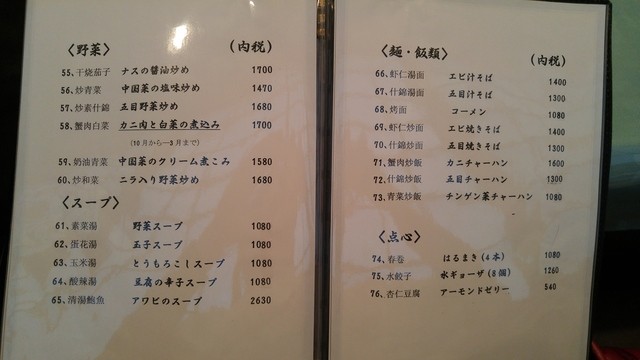 〈野菜〉 (内税)
55、干烧茄子 ナスの醤油炒め 1700
56、炒青菜 中国菜の塩味炒め 1470
57、炒素什錦 五目野菜炒め 1680
58、蟹肉白菜 カニ肉と白菜の煮込み 1700
(10月から—3月まで)
59、奶油青菜 中国菜のクリーム煮こみ 1580
60、炒和菜 ニラ入り野菜炒め 1680
〈スープ〉
61、素菜湯 野菜スープ 1080
62、蛋花湯 玉子スープ 1080
63、玉米湯 とうもろこしスープ 1080
64、酸辣湯 豆腐の辛子スープ 1080
65、清湯鮑魚 アワビのスープ 2630
〈麺・飯類〉 (内税)
66、虾仁湯面 エビ汁そば 1400
67、什錦湯面 五目汁そば 1300
68、烤面 コーメン 1080
69、虾仁炒面 エビ焼きそば 1400
70、什錦炒面 五目焼きそば 1300
71、蟹肉炒飯 カニチャーハン 1600
72、什錦炒飯 五目チャーハン 1300
73、青菜炒飯 チンゲン菜チャーハン 1080
〈点心〉
74、春卷 はるまき(4本) 1080
75、水餃子 水ギョーザ(8個) 1260
76、杏仁豆腐 アーモンドゼリー 540